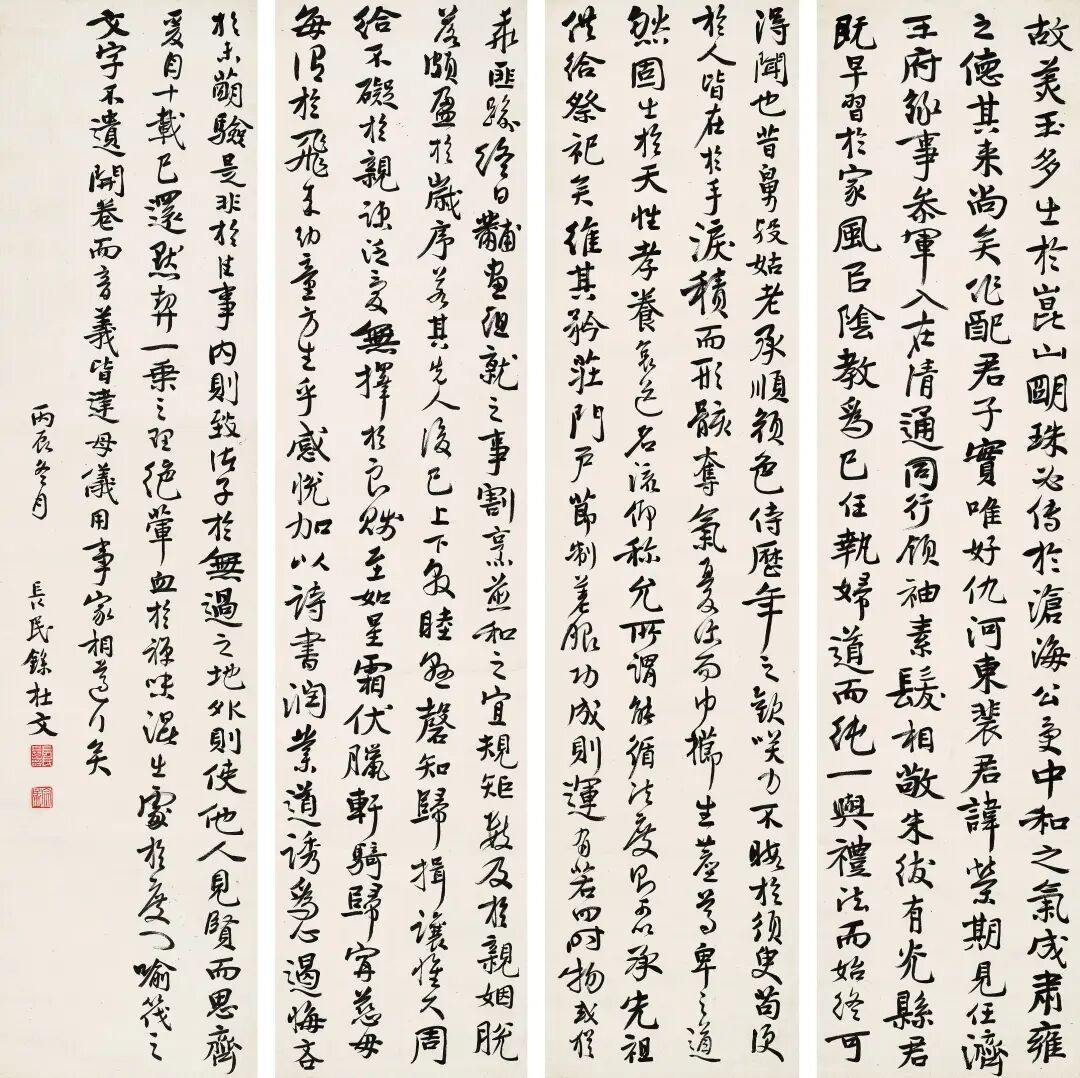 故美玉多出於崑山朙珠必傳於滄海公受中和之氣成肅雍
之德其来尚矣作配君子實唯好仇河東裴君諱榮期見任濟
王府録事參軍入在清通同行領袖素髮相敬朱紱有光縣君
既早習於家風以陰教爲己任執婦道而純一與禮法而始終可
得聞也昔舅歿姑老承順顔色侍歷年之歡咲力不暇於須臾苟便
於人皆在於手淚積而形骸奪氣憂深而巾櫛生塵尊卑之道
然固出於天性孝養哀送名流仰称允所謂能循法度則可以承先祖
供給祭祀矣維其矜莊門戸節制差服功成則運有若四时物或於
乖匪躬終日黼畫組就之事割烹煎和之宜規矩數及於親姻脱
落頗盈於歲序若其先人後己上下敦睦懸磬知歸揖讓惟久周
給不礙於親疎泛愛無擇於良賤至如星霜伏臘軒騎歸宁慈母
每謂於飛来幼童方生乎感悅加以詩書潤業道誘爲心遏悔吝
於未萌驗是非於往事内則致諸子於無過之地外則使他人見賢而思齊
爰自十載已還默契一乘之理絶葷血於禪味混出處於度門喻筏之
文字不遺開卷而音義皆達母儀用事家相遵行矣
丙辰冬月 長民錄杜文